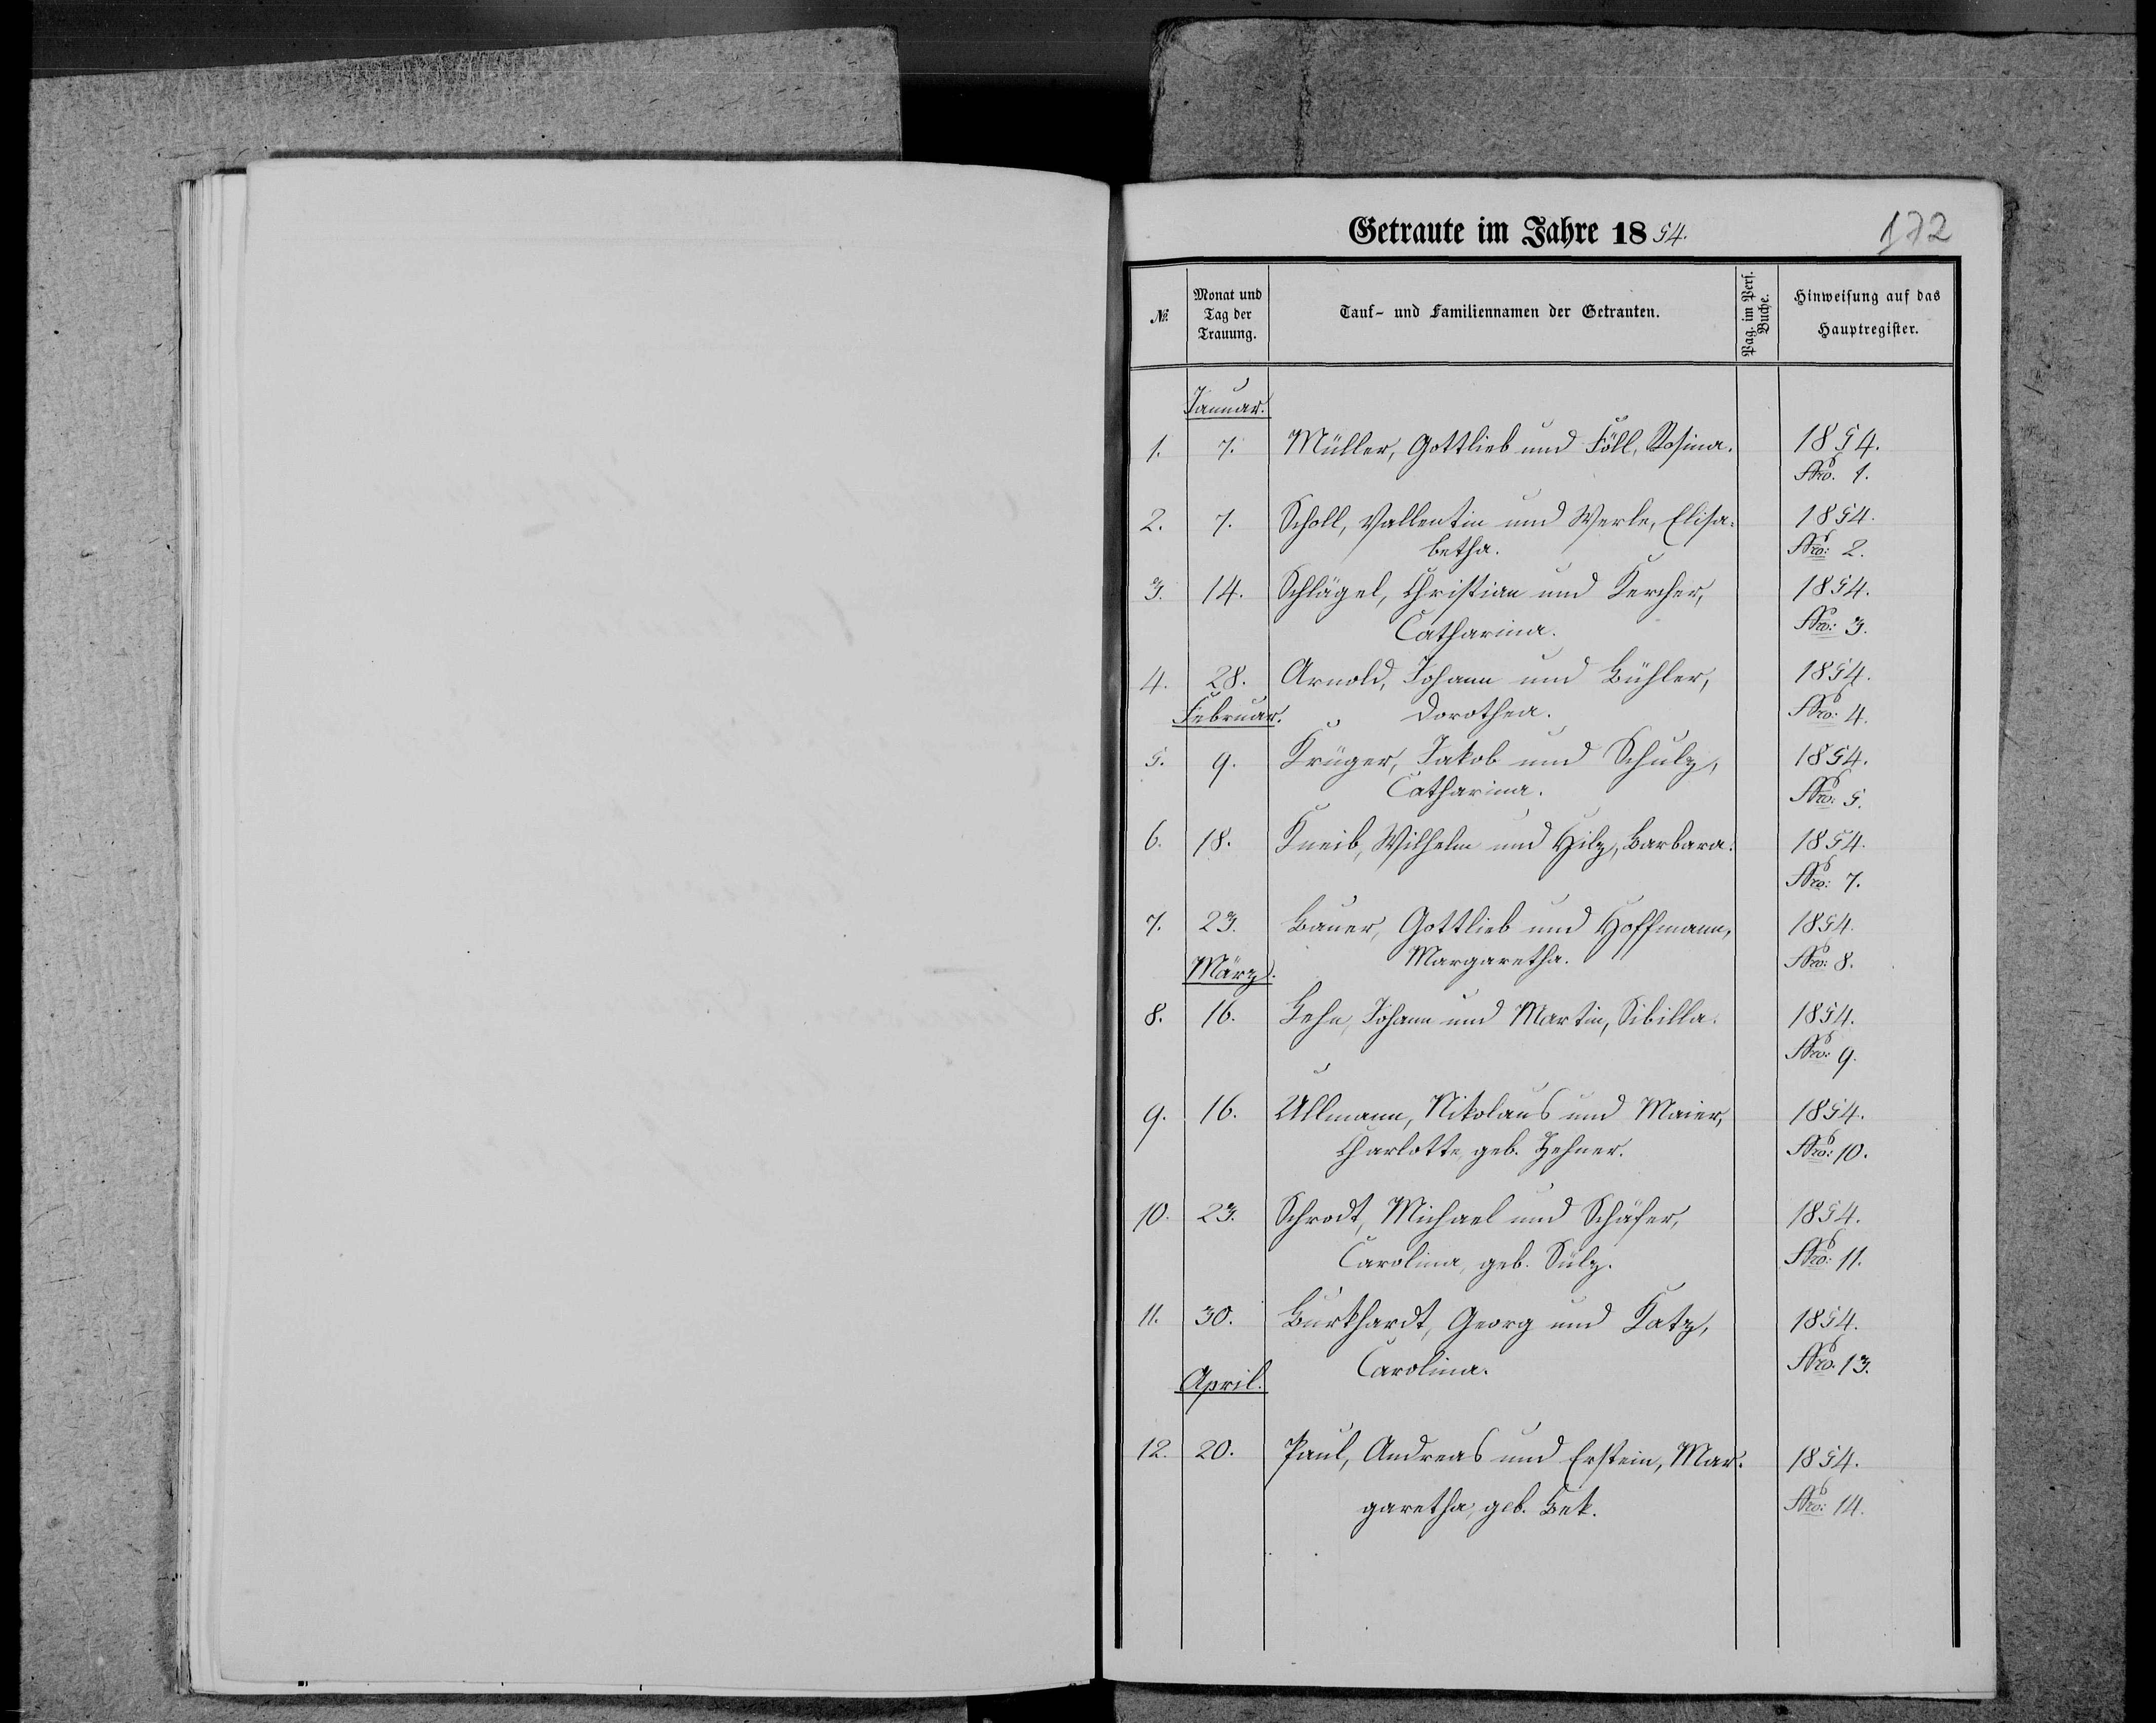 Getraute im Jahre 1854.
172
№.
Monat und
Tag der
Trauung.
Tauf- und Familiennamen der Getrauten.
Pag. im Pers.
Buche.
Hinweisung auf das
Hauptregister.
Januar.
1. 7. Müller, Gottlieb und Föll, Rosina. 1854.
Nro. 1.
2. 7. Scholl, Vallentin und Werle, Elisa- 1854.
betha. Nro: 2.
3. 14. Schlägel, Christian und Kercher, 1854.
Catharina. Nro: 3.
4. 28. Arnold, Johann und Bühler, 1854.
Februar. Dorothea. Nro: 4.
5. 9. Krüger, Jakob und Schulz, 1854.
Catharina. Nro: 5.
6. 18. Kneib, Wilhelm und Hilz, Barbara. 1854.
Nro: 7.
7. 23. Bauer, Gottlieb und Hoffmann, 1854.
März. Margaretha. Nro: 8.
8. 16. Johann und Martin, Sibilla. 1854.
Nro: 9.
9. 16. Ullmann, Nikolaus und Maier, 1854.
Charlotte, geb. Zehner. Nro: 10.
10. 23. Schrodt, Michael und Schäfer, 1854.
Carolina, geb. Sülz. Nro: 11.
11. 30. Burkhardt, Georg und Katz, 1854.
Carolina. Nro. 13.
April.
12. 20. Paul, Andreas und Erstein, Mar- 1854.
garetha, geb. Bek. Nro: 14.